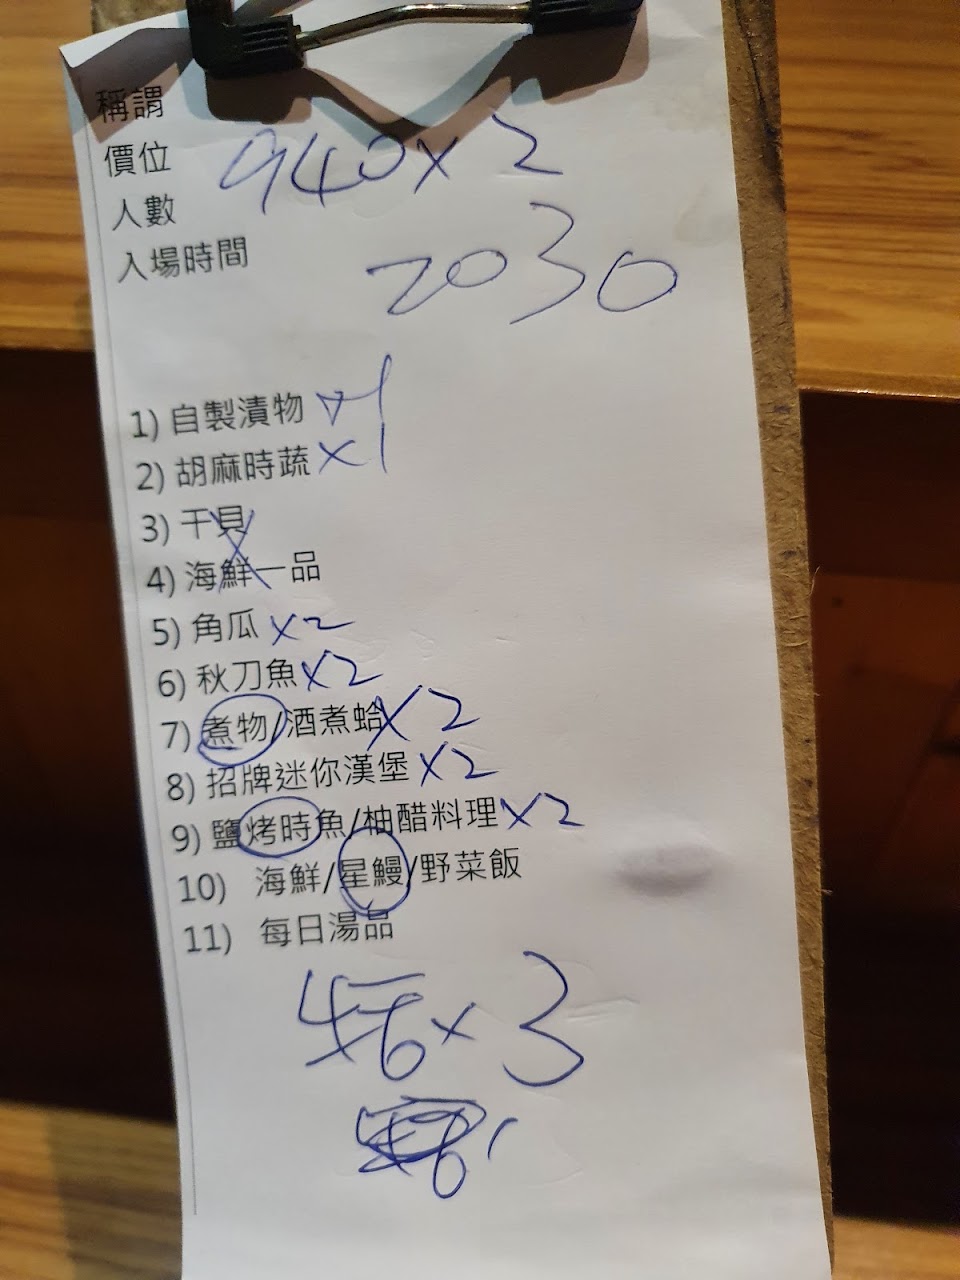 稱謂
價位 940x2
人數
入場時間 2030
1) 自製漬物
2) 胡麻時蔬 x1
3) 干貝
4) 海鮮一品
5) 角瓜 x2
6) 秋刀魚 x2
7) 煮物/酒煮蛤 x2
8) 招牌迷你漢堡 x2
9) 鹽烤時魚/柚醋料理 x2
10) 海鮮/星鰻/野菜飯
11) 每日湯品
x 3